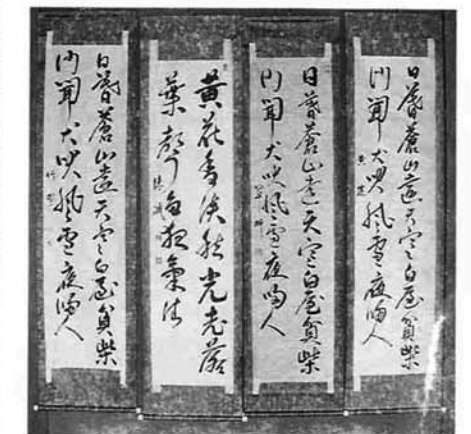 日暮蒼山遠天寒白屋貧柴
門聞犬吠風雪夜歸人
日暮蒼山遠天寒白屋貧柴
門聞犬吠風雪夜歸人
黃花香淡秋光老落
葉聲多夜氣清
日暮蒼山遠天寒白屋貧柴
門聞犬吠風雪夜歸人